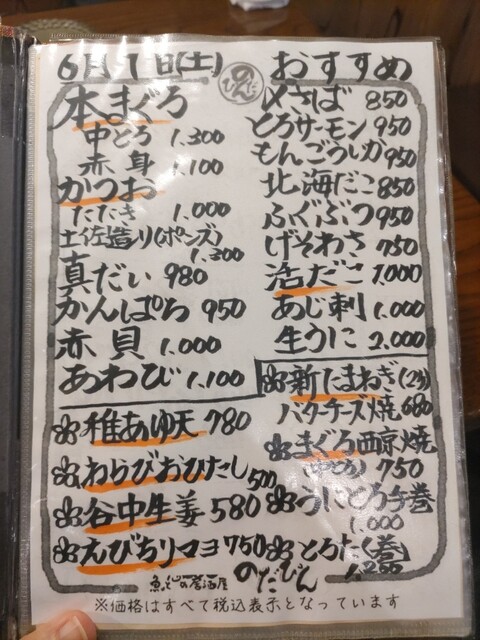 6月1日(土) のだびん おすすめ
本まぐろ
中とろ 1.300
赤身 1.100
かつお
たたき 1.000
土佐造り(ポンズ)
1.300
真だい 980
かんぱち 950
赤貝 1.000
あわび 1.100
〆さば 850
とろサーモン 950
もんごういか 950
北海だこ 850
ふぐぶつ 950
げそわさ 750
活だこ 1.000
あじ刺 1.000
生うに 2.000
稚あゆ天 780
わらびおひたし 500
谷中生姜 580
えびちりマヨ 750
新たまねぎ(2ケ)
バタチーズ焼 680
まぐろ西京焼
750
うにとろ手巻
1.000
とろたく(巻)
1.200
のだびん
※価格はすべて税込表示となっています